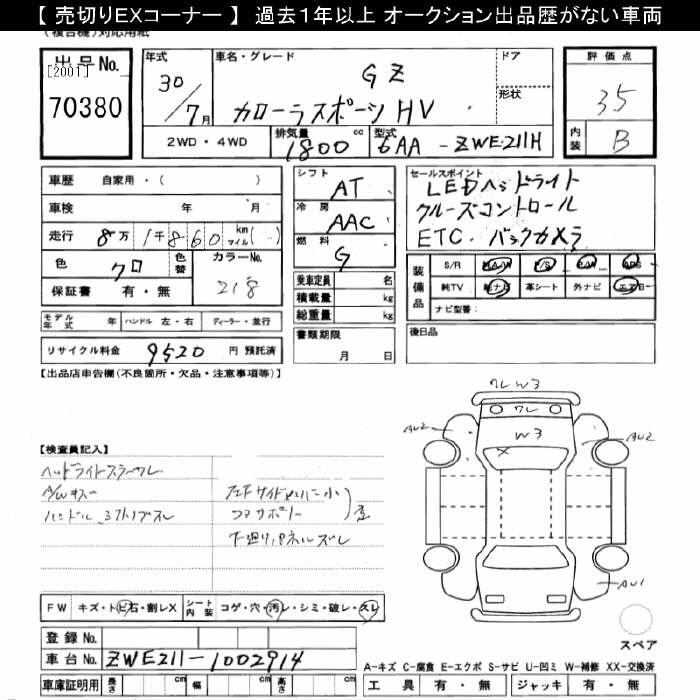 【 売切りEXコーナー 】 過去１年以上 オークション出品歴がない車両
(複合機)対応用紙
出品No.
[2001]
70380
年式 30/7月
車名・グレード GZ
カローラスポーツHV
ドア
形状
評価点
35
内装 B
2WD・4WD
排気量 1800 cc
型式 6AA-ZWE211H
車歴 自家用・( )
車検 年 月
走行 8万1千860 km マイル( )
色 クロ
色替
カラーNo. 218
保証書 有・無
シフト AT
冷房 AAC
燃料 G
乗車定員 名
積載量 kg
総重量 kg
セールスポイント
LEDヘッドライト
クルーズコントロール
ETC. バックカメラ
装備品 S/R A/W P/S P/W ABS
純TV 純ナビ 革シート 外ナビ エアB
ナビ型番:
モデル年式 年
ハンドル 左・右
ディーラー・並行
リサイクル料金 9520 円 預託済
書類期限
月 日
後日品
【出品店申告欄(不良箇所・欠品・注意事項等)】
ワレ W3
ワレ
AU2
W3
AU2
X
AU1
【検査員記入】
ヘッドライトスラーワレ
A/Wキズ
下廻リパネルズレ
FW キズ・トビ石・割レX
シート内装 コゲ・穴・汚レ・シミ・破レ・スレ
スペア
登録No.
車台No. ZWE211-1002914
車庫証明用 長さ cm 幅 cm 高さ cm
A-キズ C-腐食 E-エクボ S-サビ U-凹ミ W-補修 XX-交換済
工具 有・無 ジャッキ 有・無